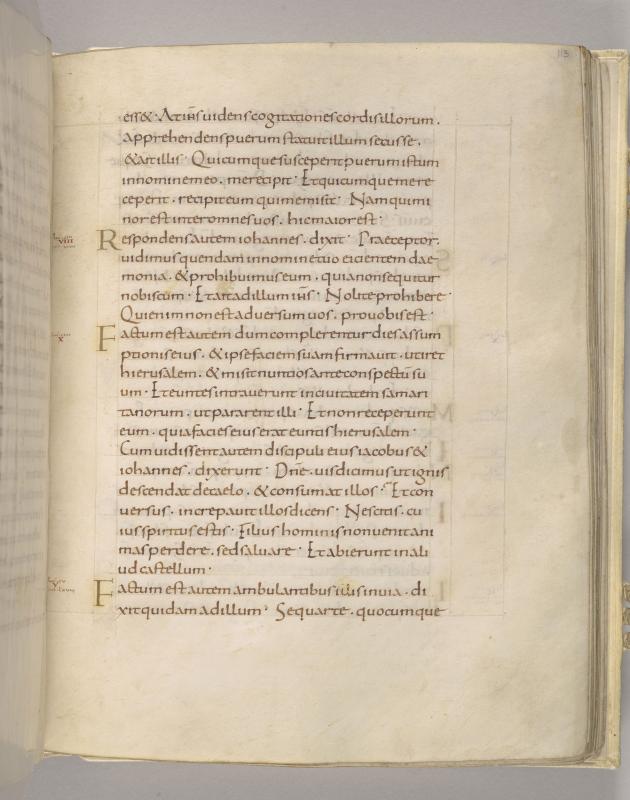 113
ess&· At ihs uidens cogitationes cordis illorum.
apprehendens puerum statuit illum secus se.
& ait illis· Quicumque susceperit puerum istum
in nomine meo. me recipit· Et quicumque me re
ceperit. recipit eum qui me misit· Nam qui mi
nor est inter omnes uos. hic maior est·
VIII
Respondens autem iohannes. dixit· Praeceptor.
uidimus quendam in nomine tuo eicientem dae
monia. & prohibuimus eum. quia non sequitur
nobiscum· Et ait ad illum ihs· Nolite prohibere·
Qui enim non est aduersum uos. pro uobis est·
X
Factum est autem dum complerentur dies assum
ptionis eius. & ipse faciem suam firmauit. ut iret
hierusalem. & misit nuntios ante conspectū su
um· Et euntes intrauerunt in ciuitatem samari
tanorum. ut pararent illi· Et non receperunt
eum. quia facies eius erat euntis hierusalem·
Cum uidissent autem discipuli eius iacobus &
iohannes. dixerunt· Dne. uis dicimus ut ignis
descendat de caelo. & consumat illos· Et con
uersus. increpauit illos dicens· Nescitis. cu
ius spiritus estis· Filius hominis non uenit ani
mas perdere. sed saluare· Et abierunt in ali
ud castellum·
Factum est autem ambulantibus illis in uia. di
xit quidam ad illum· Sequar te. quocumque